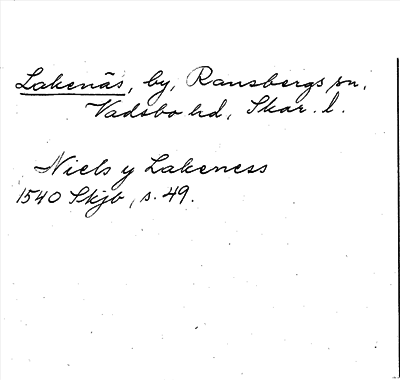 Lakenäs, by, Ransbergs sn,
Vadsbo hd, Skar. l.
Niels y Lakeness
1540 Skjb, s. 49.